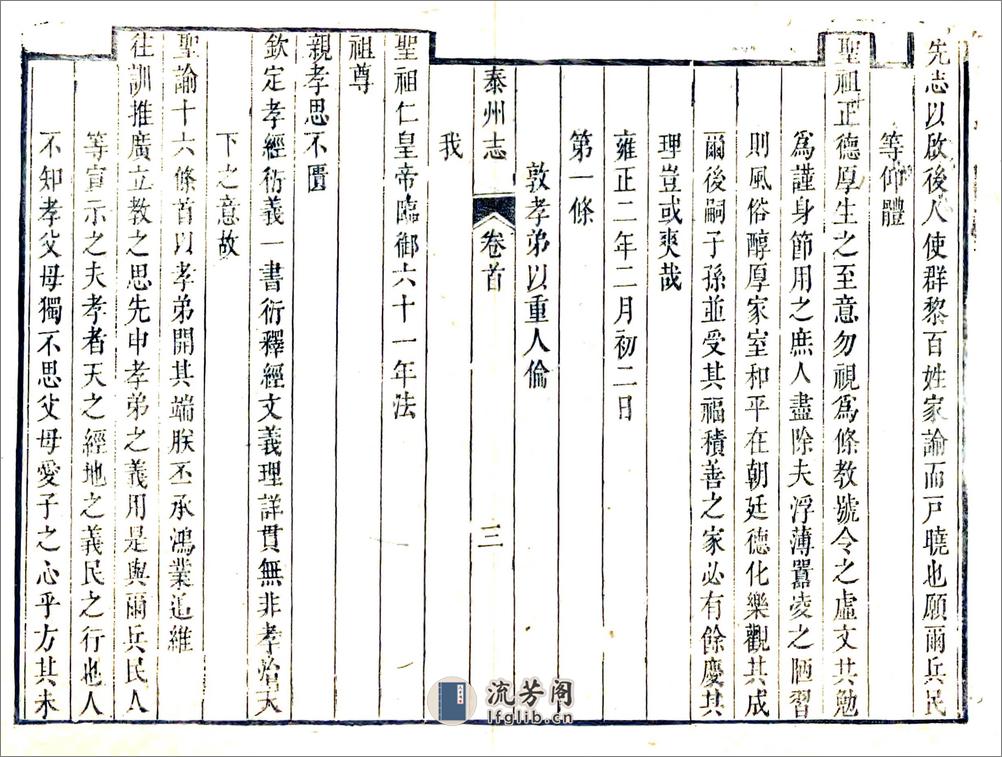 先志以啟後人使群黎百姓家諭而戸曉也願爾兵民
等仰體
聖祖正德厚生之至意勿視爲條教號令之虛文共勉
爲謹身節用之庶人盡除夫浮薄囂凌之陋習
則風俗醇厚家室和平在朝廷德化樂觀其成
爾後嗣子孫並受其福積善之家必有餘慶其
理豈或爽哉
雍正二年二月初二日
第一條
敦孝弟以重人倫
泰州志
卷首
三
我
聖祖仁皇帝臨御六十一年法
祖尊
親孝思不匱
欽定孝經衍義一書衍釋經文義理詳貫無非孝治天
下之意故
聖諭十六條首以孝弟開其端朕丕承鴻業追維
往訓推廣立教之思先申孝弟之義用是與爾兵民人
等宣示之夫孝者天之經地之義民之行也人
不知孝父母獨不思父母愛子之心乎方其未
流芳阁
lfglib.cn